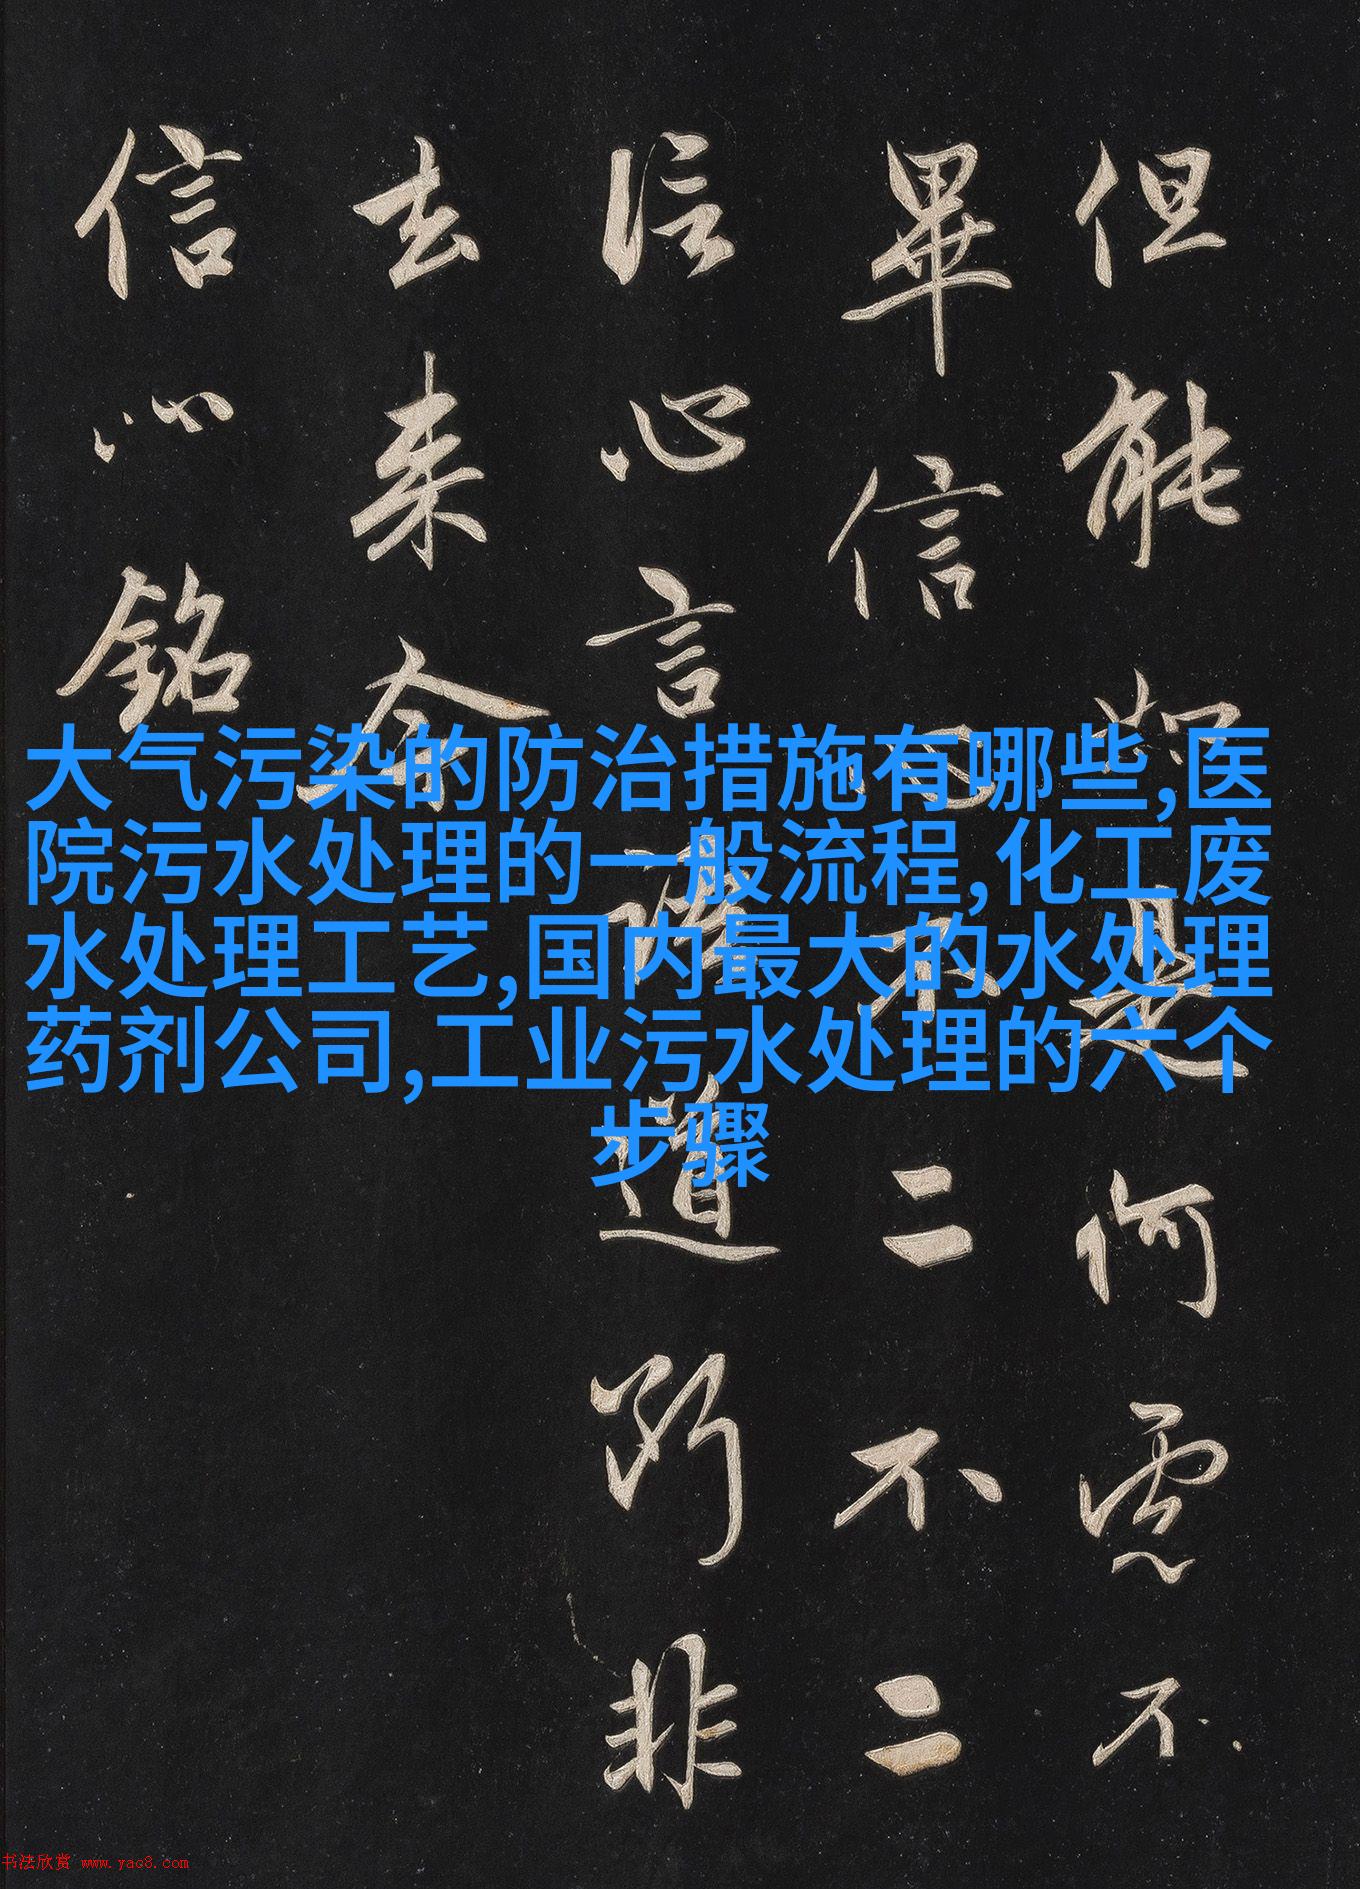 但能如是何慮不
畢信心不二不二
信心言語道斷非
去来今
信心銘
大气污染的防治措施有哪些,医
院污水处理的一般流程,化工废
水处理工艺,国内最大的水处理
药剂公司,工业污水处理的六个
步骤
书法欣赏 www.yac8.com